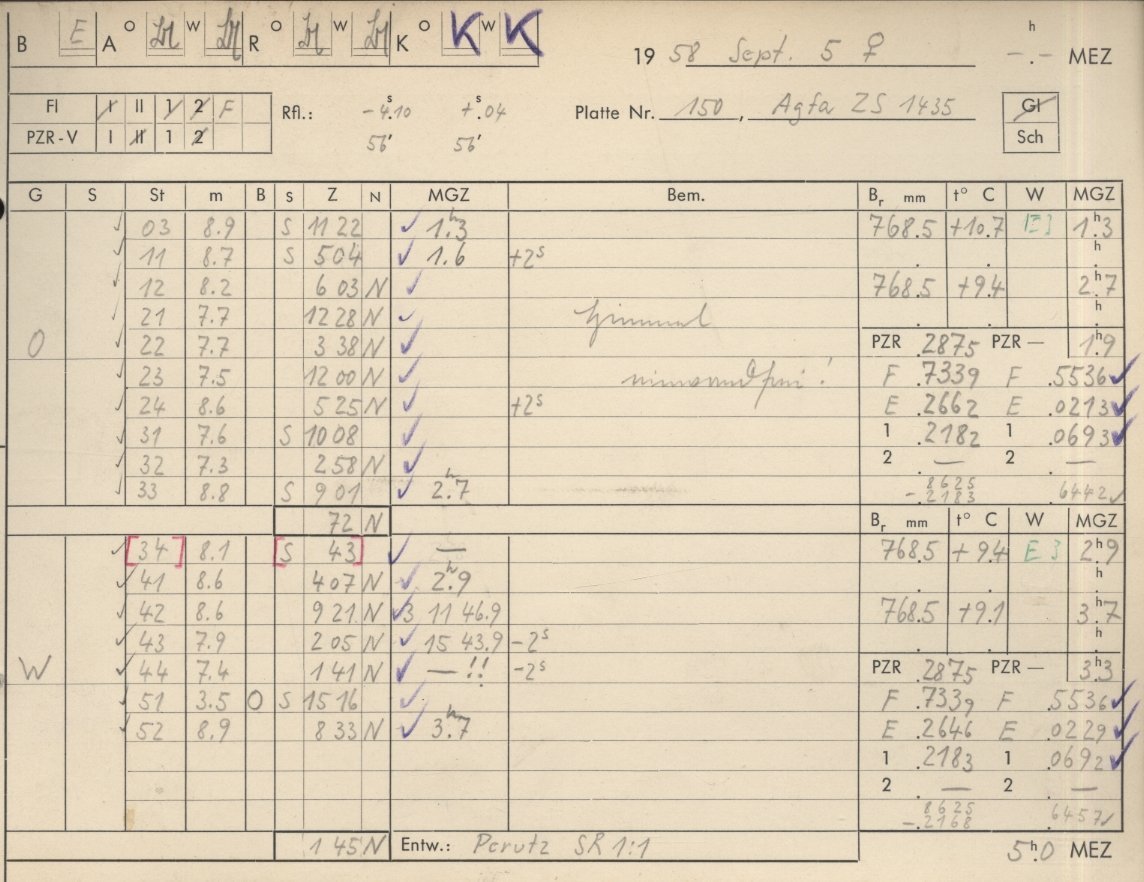 B E A O W R O W K O K W K
19 58 Sept. 5 ♀ h -.- MEZ
FI I II 1 2 F
PZR-V I II 1 2
Rfl.: -4ˢ.10 +ˢ.04
56' 56'
Platte Nr. 150, Agfa ZS 1435
Gl
Sch
G S St m B S Z N MGZ Bem. Bᵣ mm t° C W MGZ
O
03 8.9 S 11 22 ✓ 1ʰ.3 768.5 +10.7 E3 1ʰ.3
11 8.7 S 5 04 ✓ 1.6 +2ˢ
12 8.2 6 03 N ✓ 768.5 +9.4 2ʰ.7
21 7.7 12 28 N ✓ Himmel
22 7.7 3 38 N ✓ PZR .2875 PZR — 1ʰ.9
23 7.5 12 00 N ✓ F .7339 F .5536 ✓
24 8.6 5 25 N ✓ +2ˢ E .2662 E .0213 ✓
31 7.6 S 10 08 ✓ 1 .2182 1 .0693 ✓
32 7.3 2 58 N ✓ 2 — 2 —
33 8.8 S 9 01 ✓ 2ʰ.7 8625 -.2183 6442 ✓
72 N
Bᵣ mm t° C W MGZ
W
[34] 8.1 [S 43] ✓ — 768.5 +9.4 E3 2ʰ.9
41 8.6 4 07 N ✓ 2ʰ.9
42 8.6 9 21 N ✓ 3 11 46.9 768.5 +9.1 3ʰ.7
43 7.9 2 05 N ✓ 15 43.9 -2ˢ
44 7.4 1 41 N ✓ — !! -2ˢ PZR .2875 PZR — 3ʰ.3
51 3.5 O S 15 16 ✓ F .7339 F .5536 ✓
52 8.9 8 33 N ✓ 3ʰ.7 E .2646 E .0229 ✓
1 .2183 1 .0692 ✓
2 — 2 —
8625 -.2168 6457 ✓
1 45 N Entw.: Perutz SR 1:1 5ʰ.0 MEZ